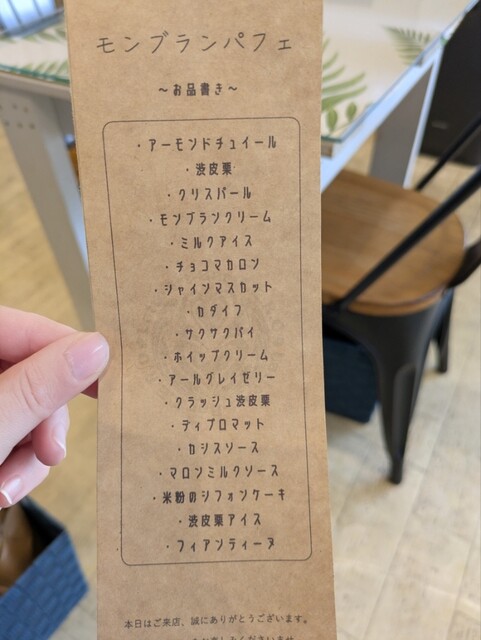 モンブランパフェ
～お品書き～
・アーモンドチュイール
・渋皮栗
・クリスパール
・モンブランクリーム
・ミルクアイス
・チョコマカロン
・シャインマスカット
・カダイフ
・サクサクパイ
・ホイップクリーム
・アールグレイゼリー
・クラッシュ渋皮栗
・ディプロマット
・カシスソース
・マロンミルクソース
・米粉のシフォンケーキ
・渋皮栗アイス
・フィアンティーヌ
本日はご来店、誠にありがとうございます。